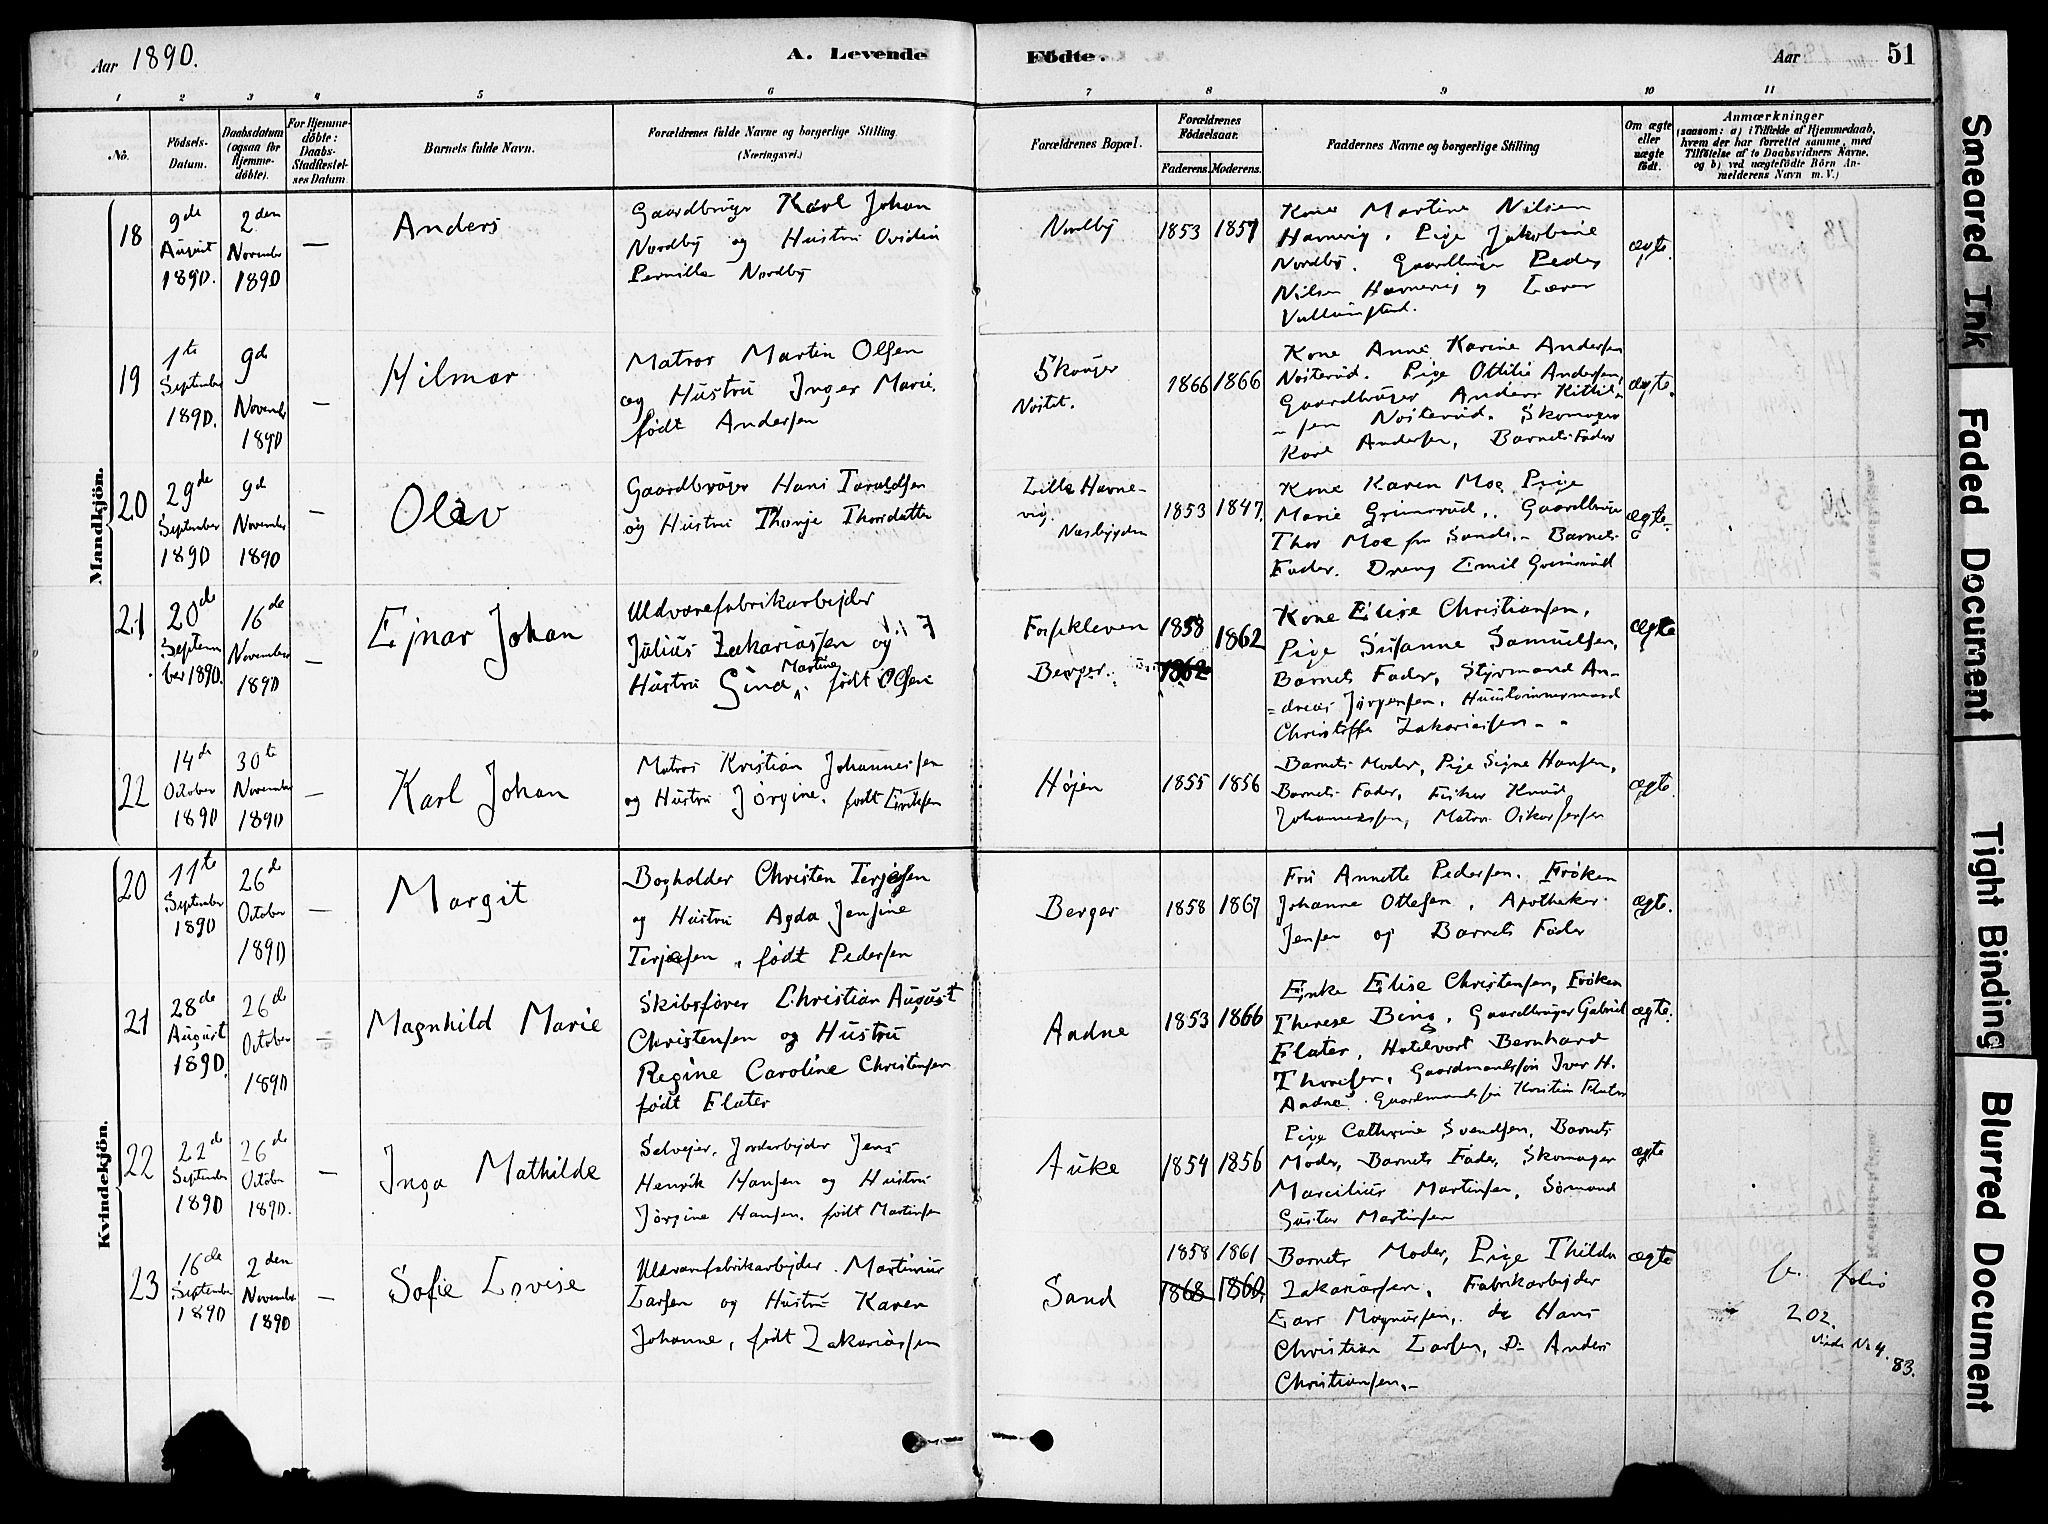 Aar 1890.
A. Levende
Fødte.
Aar
51
1 2 3 4 5 6 7 8 9 10 11
No.
Födsels-
Datum.
Daabsdatum
(ogsaa for
Hjemme-
döbte).
For Hjemme-
döbte:
Daabs-
Stadfæstel-
ses Datum.
Barnets fulde Navn.
Forældrenes fulde Navne og borgerlige Stilling.
(Næringsvei.)
Forældrenes Bopæl.
Forældrenes
Födselsaar.
Faderens.
Moderens.
Faddernes Navne og borgerlige Stilling
Om ægte
eller
uægte
födt.
Anmærkninger
(saasom: a) i Tilfælde af Hjemmedaab,
hvem der har forrettet samme, med
Tilföielse af to Daabsvidners Navne,
og b) ved uægtefödte Börn An-
melderens Navn m. V.)
Mandkjön.
18
9de
August
1890.
2den
November
1890
—
Anders
Gaardbruger Karl Johan
Nordby og Hustru Ovidia
Pernille Nordby
Nordby
1853
1857
Kone Martine Nilsen
Havnevig, Pige Jakobine
Nordby. Gaardbruger Peder
Nilsen Havnevig og Lærer
ægte.
19
1te
September
1890.
9de
November
1890
—
Hilmar
Matros Martin Olsen
og Hustru Inger Marie,
født Andersen
Skouger
Nøstet.
1866
1866
Kone Anne Karine Andersen
Nøsterud. Pige Ottilie Andersen,
Gaardbruger Anders Kittil-
-sen Nøsterud. Skomager
Karl Andersen, Barnets Fader
ægte.
20
29de
September
1890
9de
November
1890
—
Olav
Gaardbruger Hans Taraldsen
og Hustru Thonje Thorsdatter
Lille Havne-
vig.
Næsbygden
1853
1847.
Kone Karen Moe, Pige
Marie Grimsrud, Gaardbruger
Thor Moe fra Sande. Barnets
Fader. Dreng Emil Grimsrud
ægte
21
20de
Septem
ber 1890.
16de
November
1890
—
Ejnar Johan
Uldvarefabrikarbejder
Julius Zakariassen og
Hustru Gina Martine, født Olsen
Fossekleven
Berger.
1858
1862
1862
Kone Elise Christiansen,
Pige Susanne Samuelsen,
Barnets Fader, Styrmand An-
=dreas Jørgensen, Huustømmermand
Christoffer Zakariassen
ægte
22
14de
October
1890
30te
November
1890
—
Karl Johan
Matros Kristian Johannessen
og Hustru Jørgine, født Eriksen
Højen
1855
1856
Barnets Moder, Pige Signe Hansen,
Barnets Fader, Fisker Knud
Johannessen, Matros Oskar Jensen
ægte.
Kvindekjön.
20
11te
September
1890
26de
October
1890
—
Margit
Bogholder Christen Terjesen
og Hustru Agda Jensine
Terjesen, født Pedersen
Berger
1858
1867
Fru Annette Pedersen. Frøken
Johanne Ottesen, Apotheker
Jensen og Barnets Fader
ægte.
21
28de
August
1890.
26de
October
1890
—
Magnhild Marie
Skibsfører Christian August
Christensen og Hustru
Regine Caroline Christensen
født Elster
Aadne
1853
1866
Enke Elise Christensen, Frøken
Therese Bing, Gaardbruger Gabriel
Elster, Hotelvært Bernhard
Thoresen, Gaardmandssøn Iver H.
Aadne. Gaardmandssøn Kristian Elster
ægte.
22
22de
September
1890
26de
October
1890.
—
Inga Mathilde
Selvejer, Jordarbejder Jens
Henrik Hansen og Hustru
Jørgine Hansen, født Martinsen
Auke
1854
1856
Pige Cathrine Svendsen, Barnets
Moder, Barnets Fader, Skomager
Marcilius Martinsen, Sømand
Gustav Martinsen
ægte
23
16de
September
1890
2den
November
1890
—
Sofie Lovise
Uldvarefabrikarbejder Martinius
Larsen og Hustru Karen
Johanne, født Zakariassen
Sand
1858
1861
1868
1860.
Barnets Moder, Pige Thilda
Zakariassen, Fabrikarbejder
Lars Magnussen, do Hans
Christian Larsen, Do Anders
Christiansen.
ægte
folio
202.
No 4.
83.
Smeared Ink
Faded Document
Tight Binding
Blurred Document